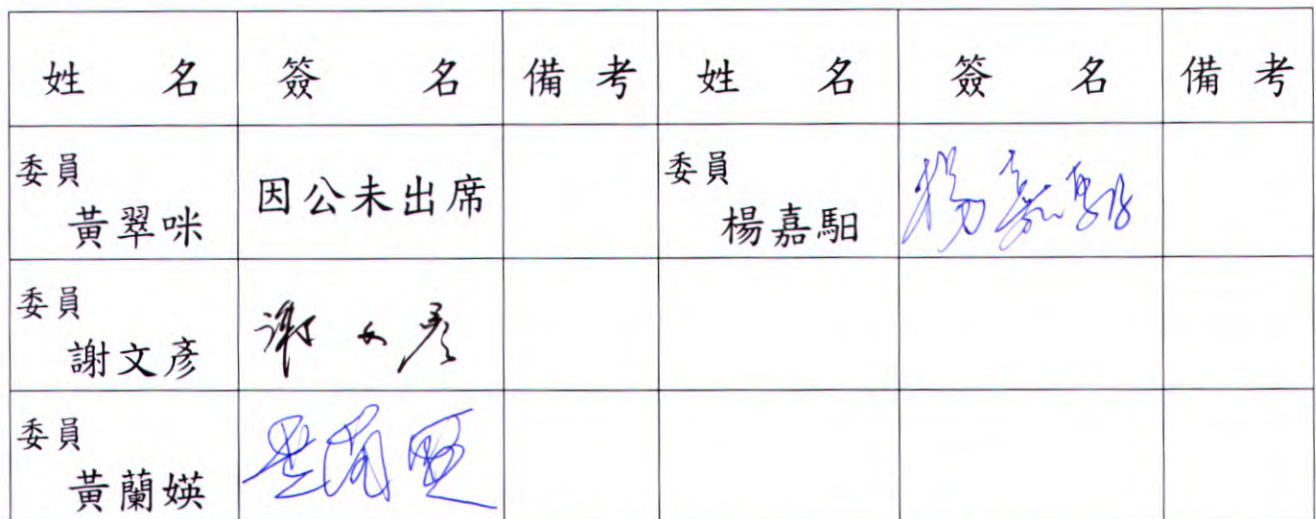 姓 名 簽 名 備 考 姓 名 簽 名 備 考
委員 黃翠咪 因公未出席 委員 楊嘉馹 楊嘉馹
委員 謝文彥 謝文彥
委員 黃蘭媖 黃蘭媖